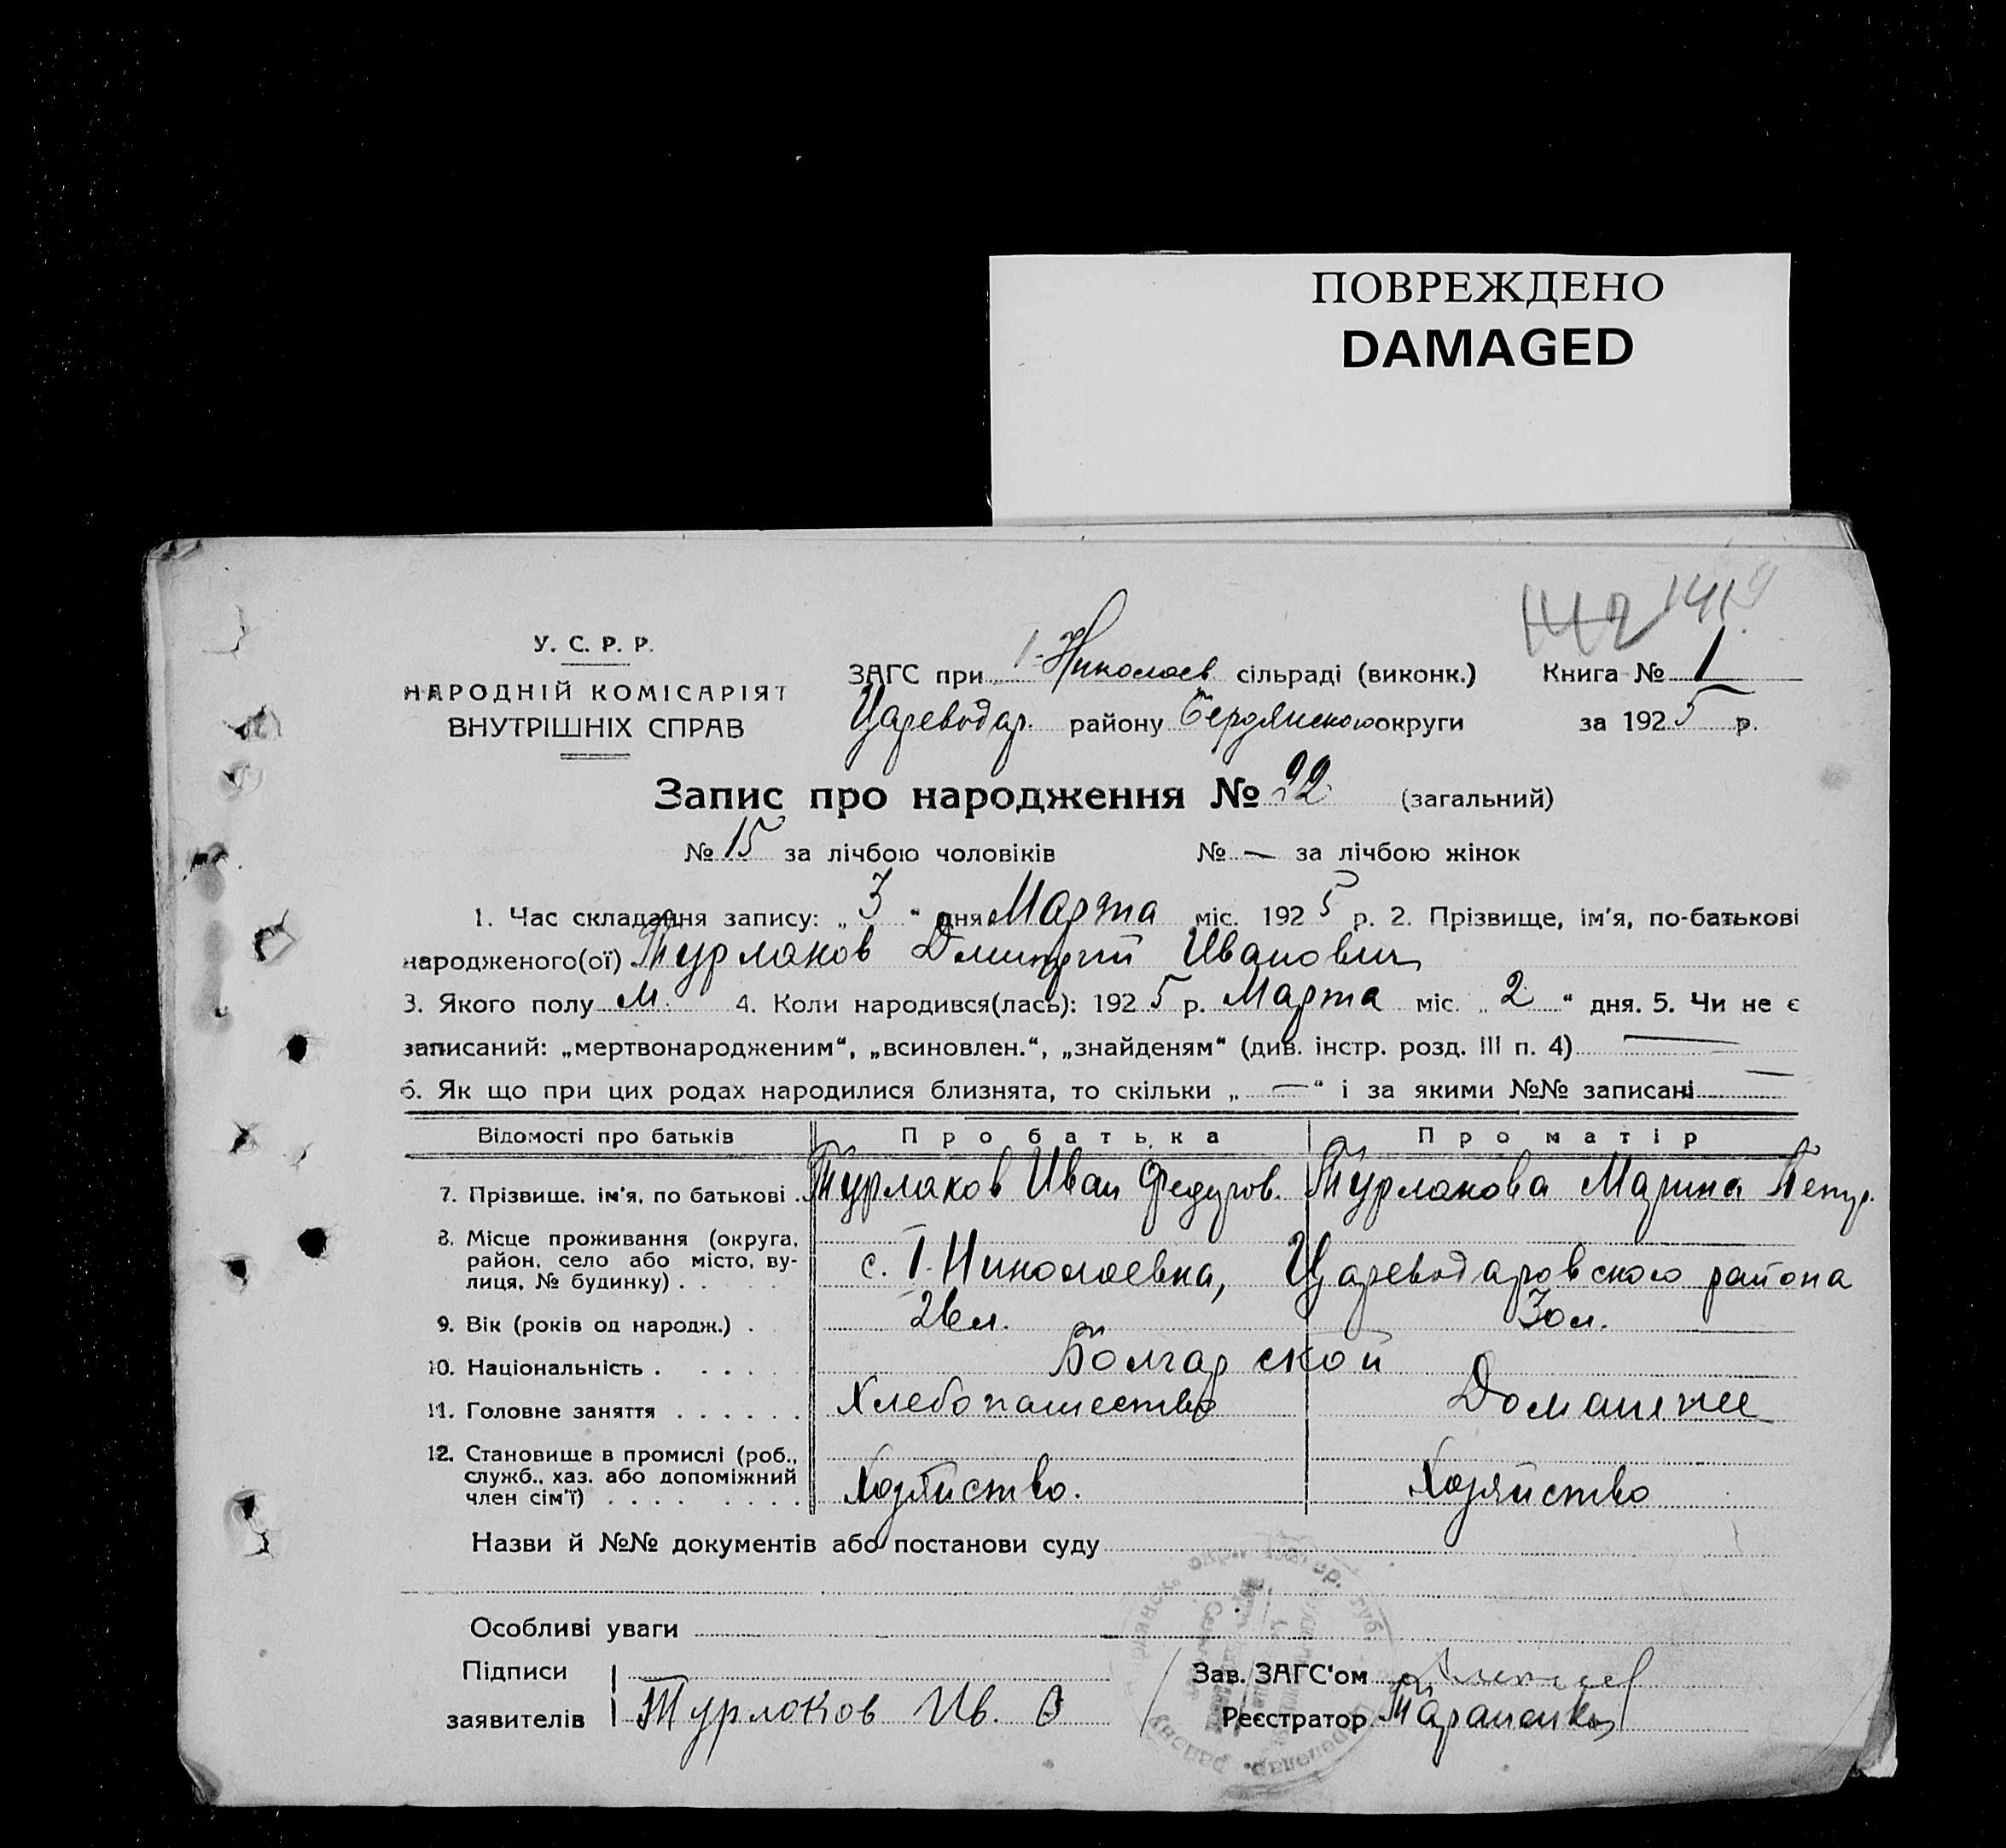 ПОВРЕЖДЕНО
DAMAGED
142 141
У. С. Р. Р.
НАРОДНІЙ КОМІСАРІЯТ
ВНУТРІШНІХ СПРАВ
ЗАГС при 1-Николаев сільраді (виконк.) Книга № 1
Цареводар. району Бердянского округи за 1925 р.
Запис про народження № 22 (загальний)
№ 15 за лічбою чоловіків № — за лічбою жінок
1. Час складання запису: „ 3 “ дня Марта міс. 1925 р. 2. Прізвище, ім'я, по-батькові
народженого(ої) Турлаков Дмитрий Иванович
3. Якого полу М. 4. Коли народився(лась): 1925 р. Марта міс. „ 2 “ дня. 5. Чи не є
записаний: „мертвонародженим“, „всиновлен.“, „знайденям“ (див. інстр. розд. III п. 4) —
6. Як що при цих родах народилися близнята, то скільки „ — “ і за якими №№ записані —
Відомості про батьків Про батька Про матір
7. Прізвище, ім'я, по батькові . Турлаков Иван Федоров. Турлакова Марина Петр.
8. Місце проживання (округа, район, село або місто, вулиця, № будинку) . . . . с. I-Николаевка, Цареводаровского района
9. Вік (років од народж.) . 26 л. 30 л.
10. Національність . . . . . Болгарской
11. Головне заняття . . . . . . Хлебопашество Домашнее
12. Становище в промислі (роб., служб., хаз. або допоміжний член сім'ї) . . . . . . . . Хозяйство. Хозяйство
Назви й №№ документів або постанови суду
Особливі уваги
Підписи
заявителів Турлаков Ив. Ѳ
Зав. ЗАГС'ом
Реєстратор